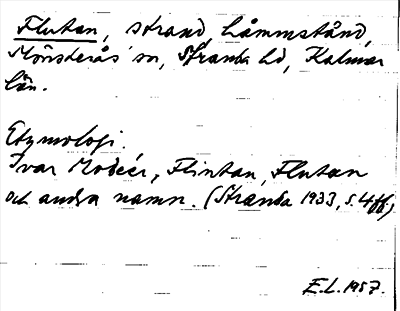 Flutan, strand, Låmmstånd,
Mönsterås sn, Stranda hd, Kalmar
län.
Etymologi.
Ivar Modéer, Flintan, Flutan
och andra namn. (Stranda 1933, s. 4 ff)
E.L. 1957.